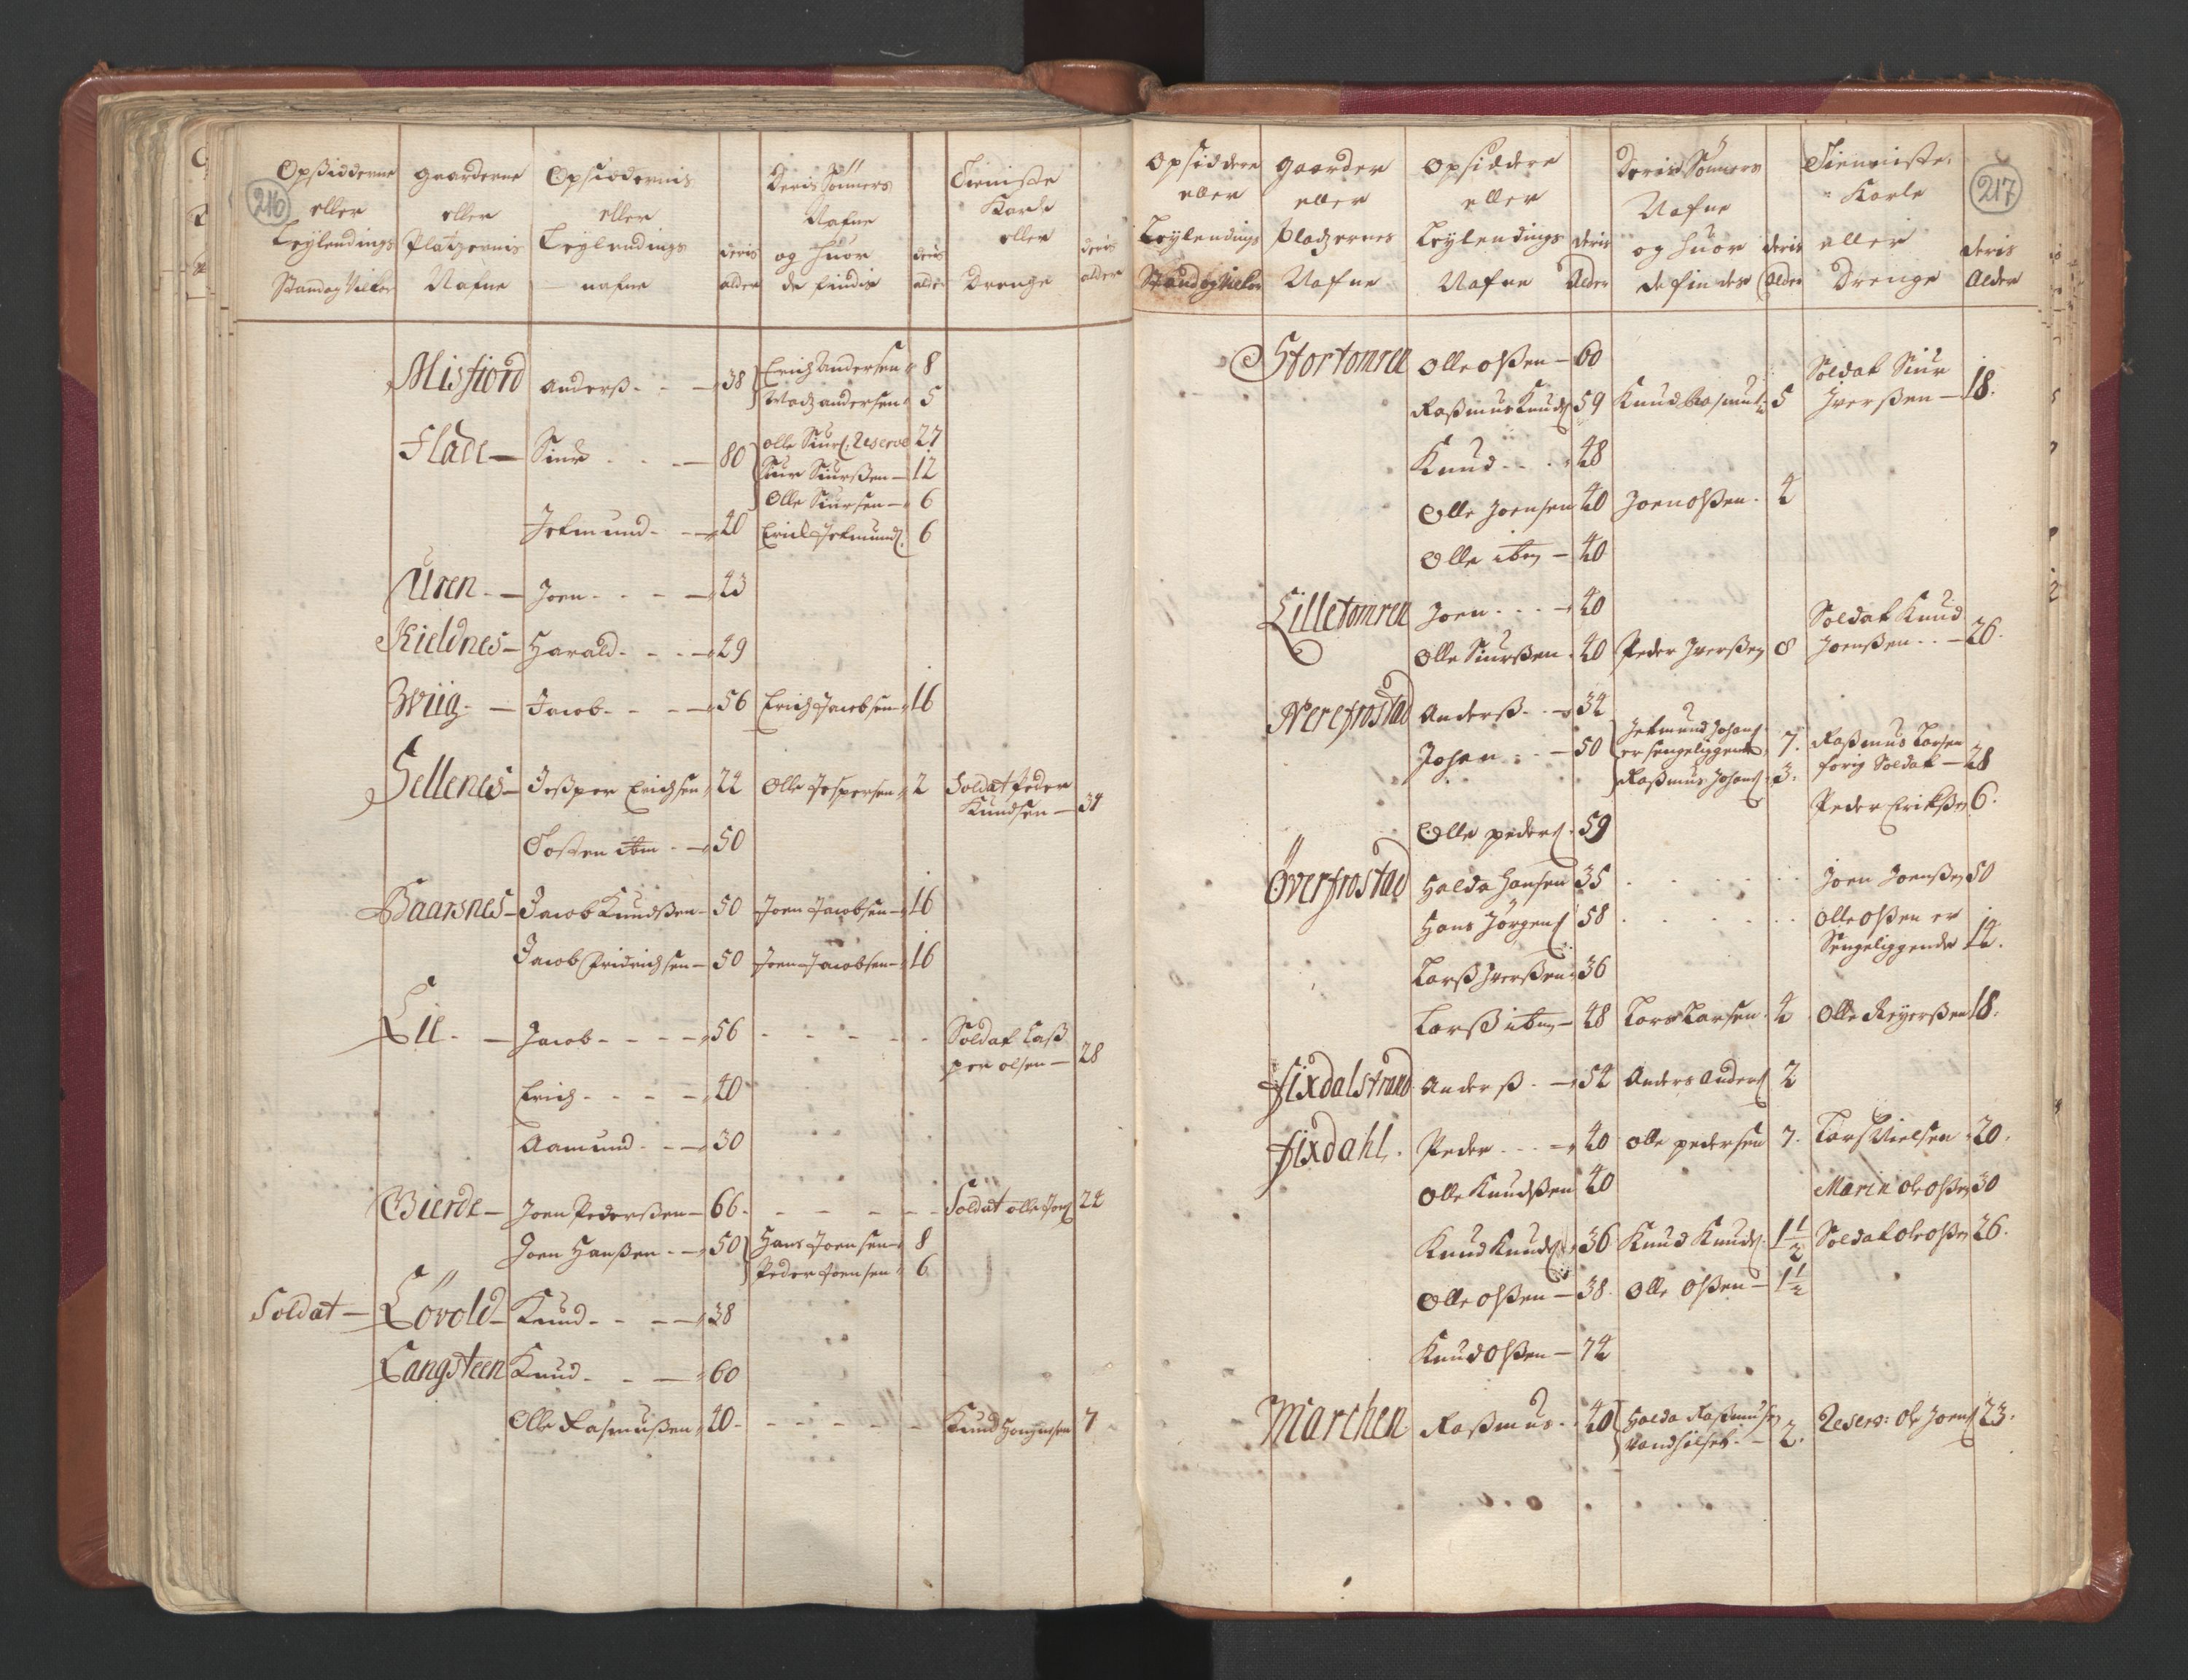 216
Opsidderne eller Leylendings Stand og Vilkor
Gaarderne eller Platzernis Nafne
Opsidernis eller Leylendings nafne
deris alder
Deris Sönners Nafne og huor de findis
deris alder
Tieniste Karle eller Drenge
deris alder
Misfiord Anderß - - - 38 Erich Andersen 8
Madz andersen 5
Flade - Siur - - - 80 olle Siurs. Reserve 27
Siur Siurßen - 12
Olle Siursen - 6
Jetmund - - 40 Erich Jetmunds. 6
Uren - - Joen - - - 43
Kieldnes - Harald - - - 49
Wiig - - Jacob - - - 56 Erich Jacobsen 16
Sellenes - Jeßper Erichsen 22 Olle Jespersen 2 Soldat Peder
Knudsen - 34
Tosten ibm - 50
Baarsnes - Jacob Knudßen - 50 Joen Jacobsen - 16
Jacob Fridrichsen - 50 Joen Jacobsen - 16
Lii - - Jacob - - - - 56 - - - - - Soldat Caß
per olsen - 28
Erich - - - - 40
Aamund - - - 30
Gierde - Joen Pederßen - 66 - - - - - Soldat olle Jons 24
Joen Hanßen - - 50 Hans Joensen 8
Peder Joensen 6
Soldat - Lövold - Knud - - - - 38
Langsteen Knud - - - 60
Olle Rasmußen 40 - - - - - - Knud 7
217
Opsiddere eller Leylendings Stand og Vilkor
Gaarder eller Pladzernes Nafne
Opsiddere eller Leylendings Nafne
deris Alder
Deris Sönners Nafne og huor de findes
deris Alder
Tienniste Karle eller Drenge
deris Alder
Stortomren Olle Olßen - 60 Soldat Siur
Raßmus Knuds 59 Knud Rasmus 5 Jverßen - 18.
Knud - - - 48
Olle Joensen 40 Joen Olßen - 4
Olle ibm - 40
Lilletomren Joen - - - 40 Soldat Knud
Olle Siurßen 40 Peder Jverßen 8 Joenßen - - 26.
Nerefrostad Anderß - - 34
Johan - - 50 Jetmund Johans
er sengeliggende 7. Raßmus Larsen
forig Soldat - 28
Raßmus Johans 3.
Peder Erikßen 6.
Olle peders. 59
Överfrostad Halda Hansen 35 - - - - - Joen Joenßen 50
Hans Jörgens 58 - - - - - Olle Olßen er
Sengeliggende 14.
Larß Jverßen 36
Larß ibm - 48 Lars Larsen 4 Olle Reyerßen 18.
Fixdalstrand Anderß - - 54 Anders Anders 2
Fixdahl. Peder - - - 40 Olle pedersen 7. Lars Nielsen 20.
Olle Knudßen 40 Marin Ole Olßen 30
Knud Knuds 36 Knud Knuds. 1½ Soldat Ole Olßen 26.
Olle Olßen - 38. Olle Olßen - 1½
Knud Olßen - 74
Marchen Raßmus - - 40 Halda Raßmusen
2. Reserv: Ole Joens 23.